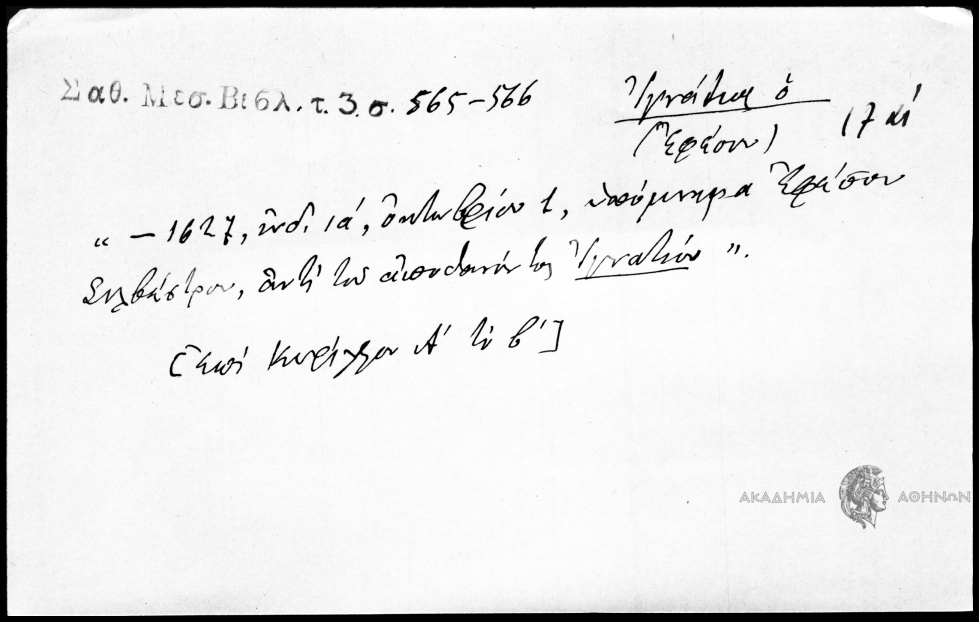 Σαθ. Μεσ. Βιβλ. τ. 3. σ. 565-566
Ἰγνάτιος ὁ
(Ἐφέσου)
17 αἰ
“ – 1627, ἰνδ. ιά, ὀκτωβρίου 1, ὑπόμνημα Ἐφέσου
Σιλβέστρου, ἀντὶ τοῦ ἀποθανόντος Ἰγνατίου ”.
[Ἐπὶ Κυρίλλου Α' τὸ β']
ΑΚΑΔΗΜΙΑ ΑΘΗΝΩΝ